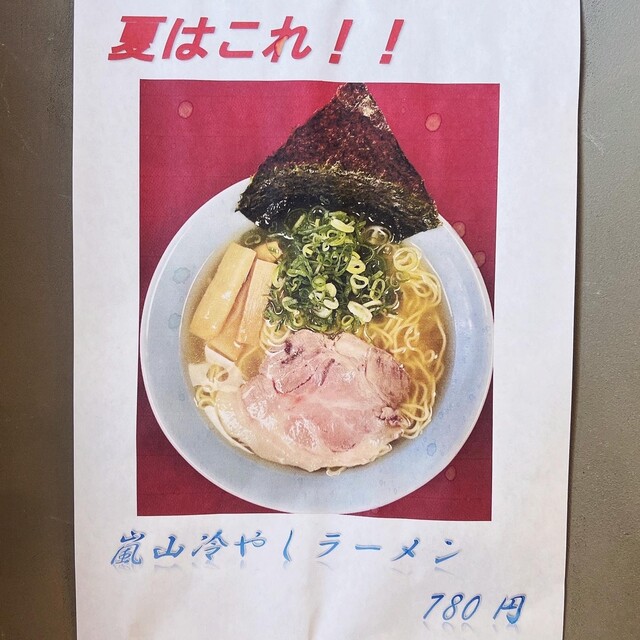 夏はこれ！！
嵐山冷やしラーメン
780円